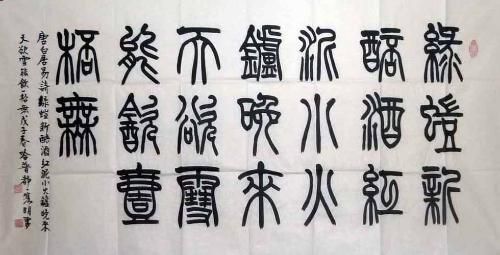 綠螘新
醅酒紅
泥小火
鑪晚來
天欲雪
能飲壹
桮無
唐白居易詩綠螘新醅酒紅泥小火鑪晚來
天欲雪能飲一桮無戊子春